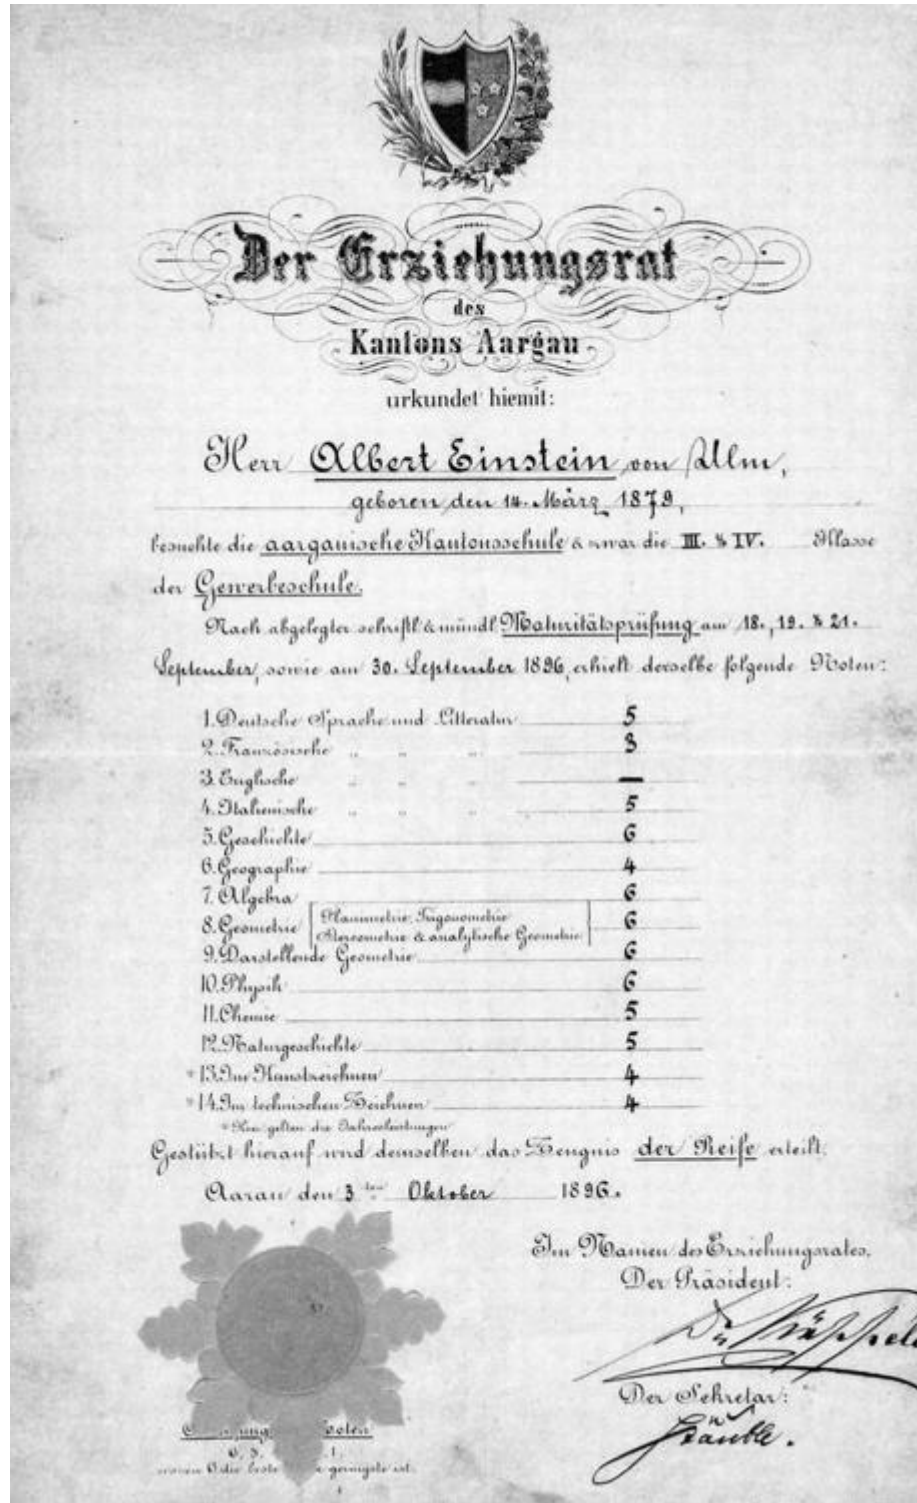 Der Erziehungsrat
des
Kantons Aargau
urkundet hiemit:
Herr Albert Einstein von Ulm,
geboren den 14. März 1879,
besuchte die aargauische Kantonsschule & zwar die III. & IV. Klasse
der Gewerbeschule.
Nach abgelegter schriftl. & mündl. Maturitätsprüfung am 18., 19. & 21.
September, sowie am 30. September 1896, erhielt derselbe folgende Noten:
1. Deutsche Sprache und Litteratur 5
2. Französische " " " 3
3. Englische " " " —
4. Italienische " " " 5
5. Geschichte 6
6. Geographie 4
7. Algebra 6
8. Geometrie Planimetrie, Trigonometrie 6
Stereometrie & analytische Geometrie
9. Darstellende Geometrie 6
10. Physik 6
11. Chemie 5
12. Naturgeschichte 5
* 13. Im Kunstzeichnen 4
* 14. Im technischen Zeichnen 4
* Hier gelten die Jahresleistungen
Gestützt hierauf wird demselben das Zeugnis der Reife erteilt.
Aarau den 3ten Oktober 1896.
Im Namen des Erziehungsrates,
Der Präsident:
Der Sekretär:
Stäuble.
6, 5, 1.
6 die beste geringste ist.